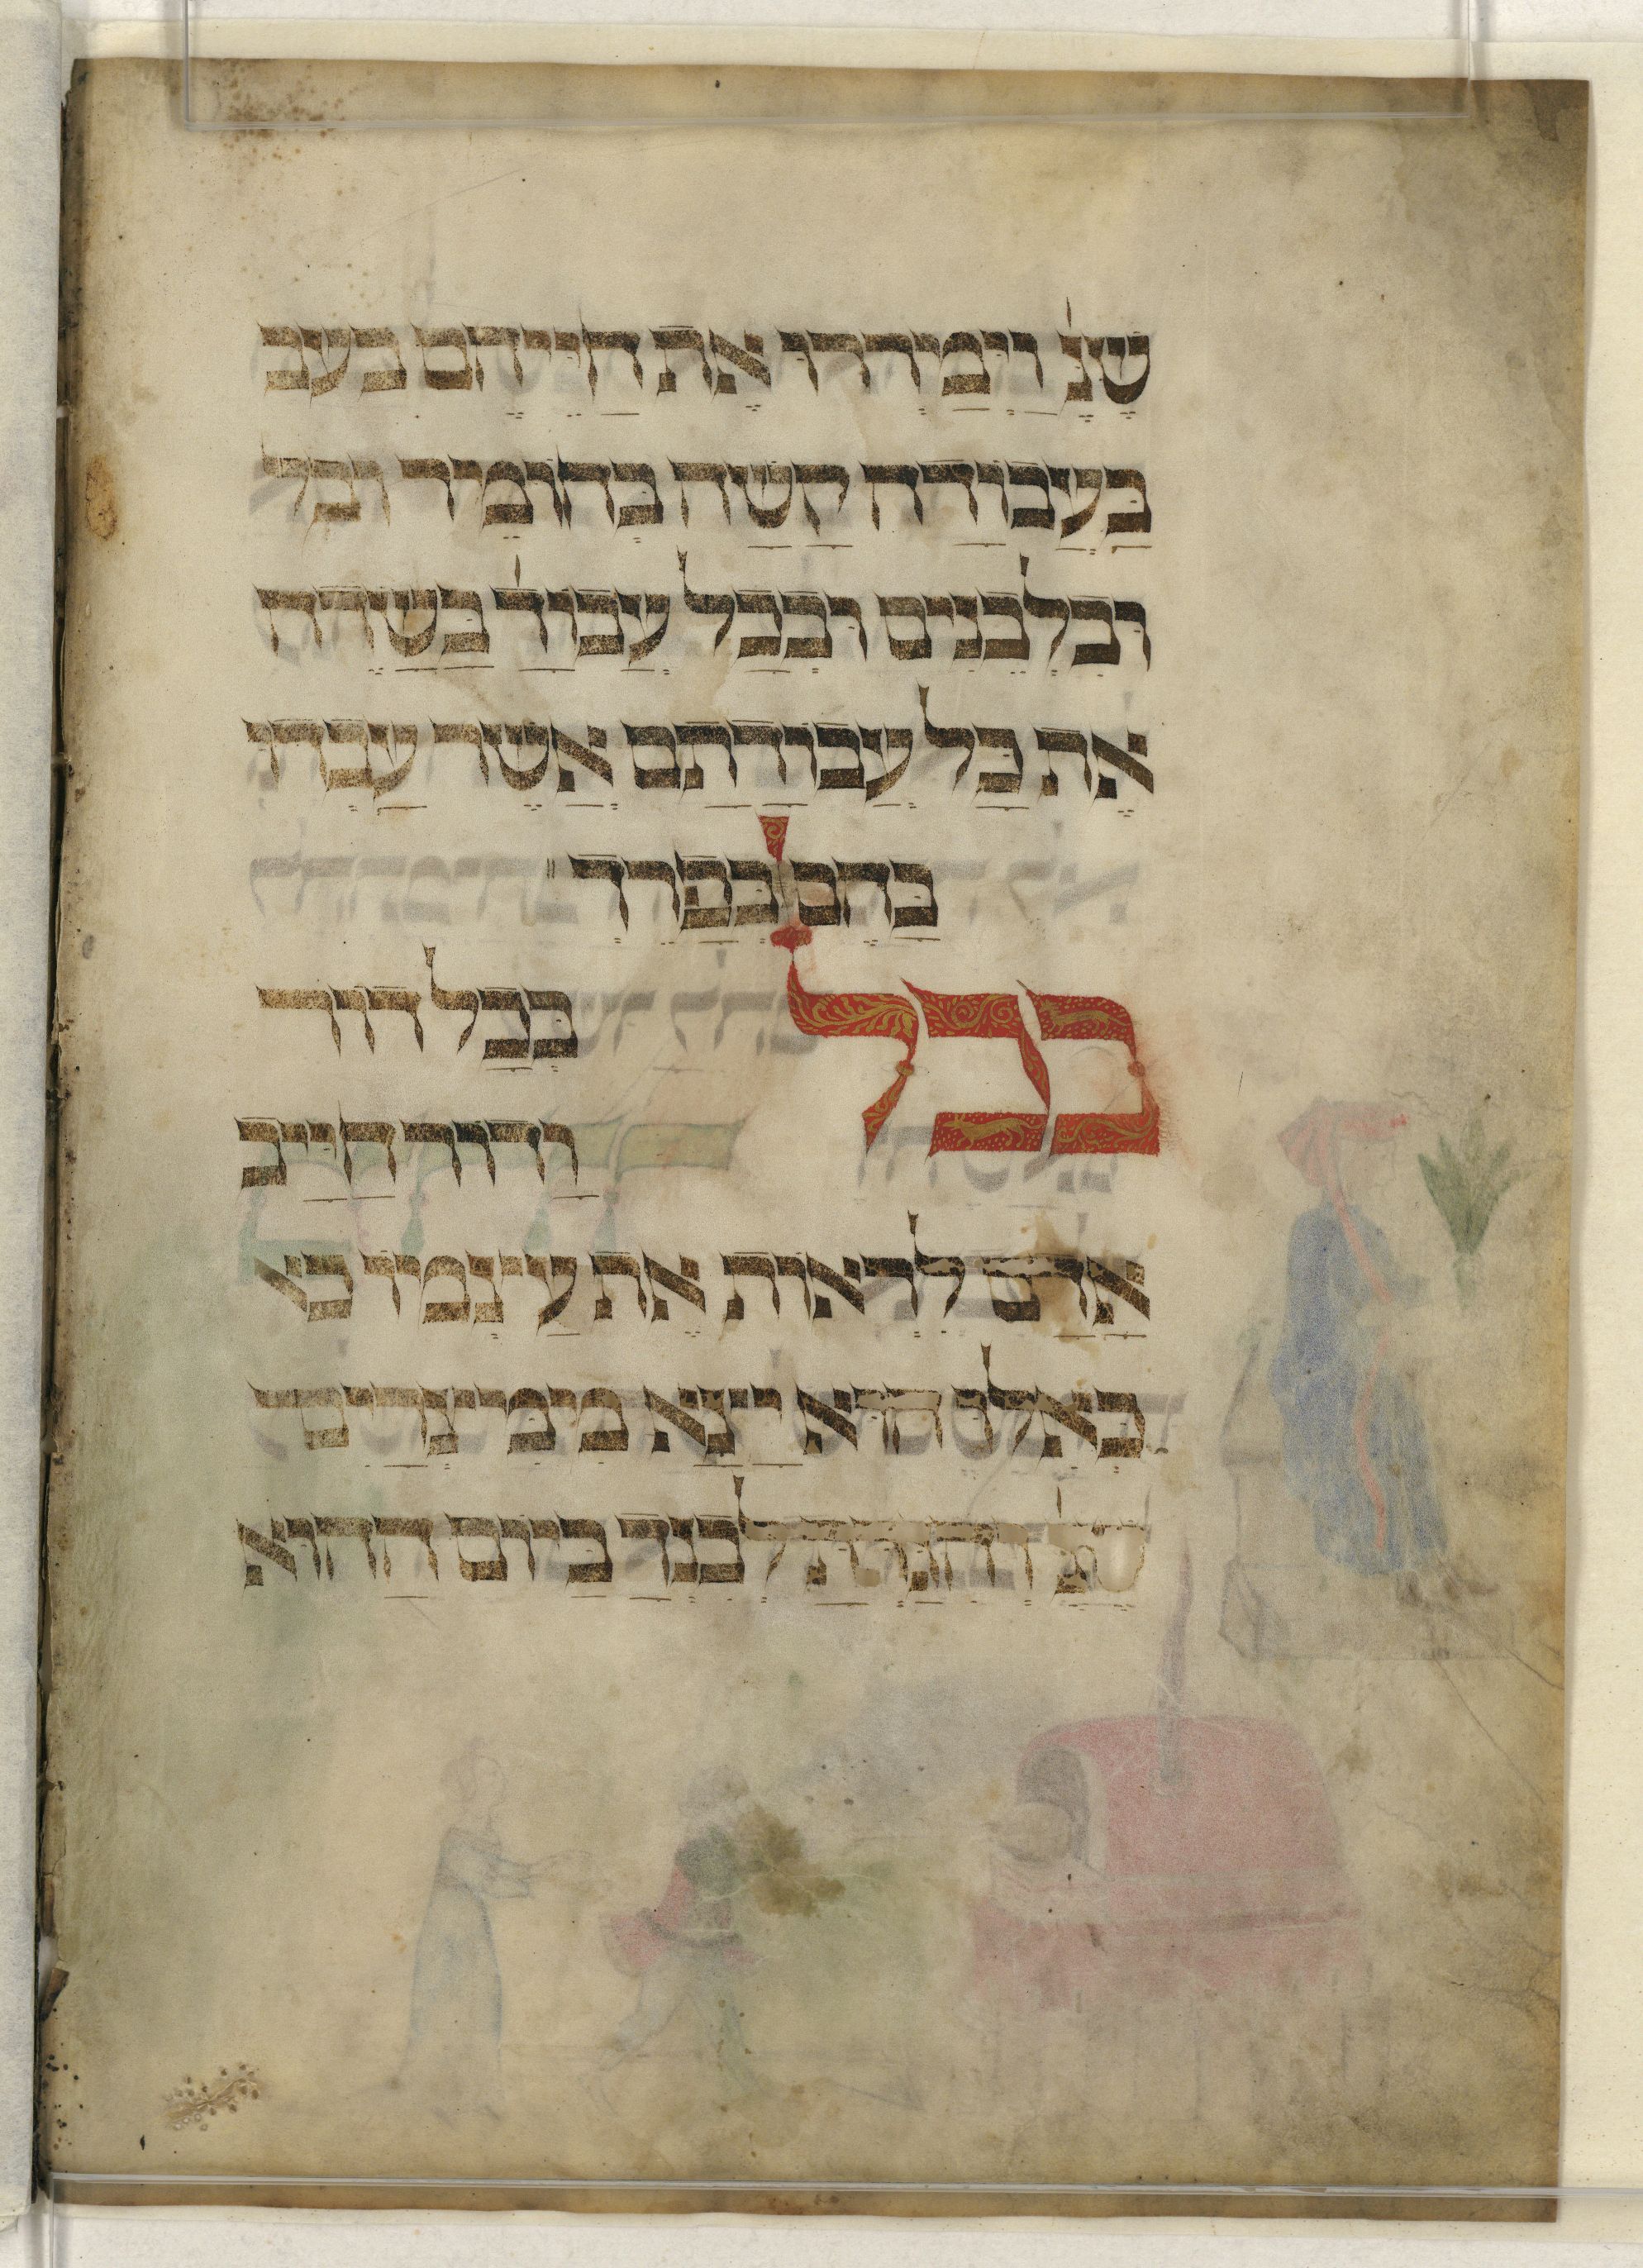 שנ׳ וימררו את חייהם בעב
בעבודה קשה בחומר ובל
ובלבנים ובכל עבוד׳ בשדה
את כל עבודתם אשר עבדו
בהם בפרך
בכל בכל דור
ודור חייב
אדם לראות את עצמו כא
כאלו הוא יצא ממצרים
שנ׳ והגדת לבנך ביום ההוא